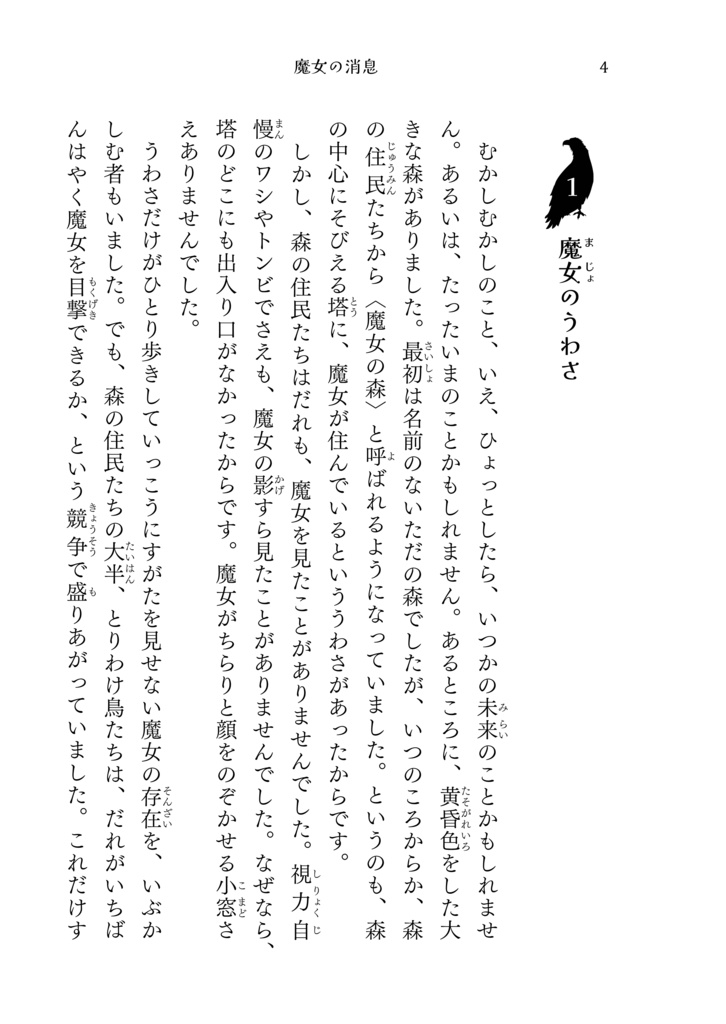 魔女の消息
4
1
魔女のうわさ
むかしむかしのこと、いえ、ひょっとしたら、いつかの未来のことかもしれませ
ん。あるいは、たったいまのことかもしれません。あるところに、黄昏色をした大
きな森がありました。最初は名前のないただの森でしたが、いつのころからか、森
の住民たちから〈魔女の森〉と呼ばれるようになっていました。というのも、森
の中心にそびえる塔に、魔女が住んでいるといううわさがあったからです。
しかし、森の住民たちはだれも、魔女を見たことがありませんでした。視力自
慢のワシやトンビでさえも、魔女の影すら見たことがありませんでした。なぜなら、
塔のどこにも出入り口がなかったからです。魔女がちらりと顔をのぞかせる小窓さ
えありませんでした。
うわさだけがひとり歩きしていっこうにすがたを見せない魔女の存在を、いぶか
しむ者もいました。でも、森の住民たちの大半、とりわけ鳥たちは、だれがいちば
んはやく魔女を目撃できるか、という競争で盛りあがっていました。これだけす